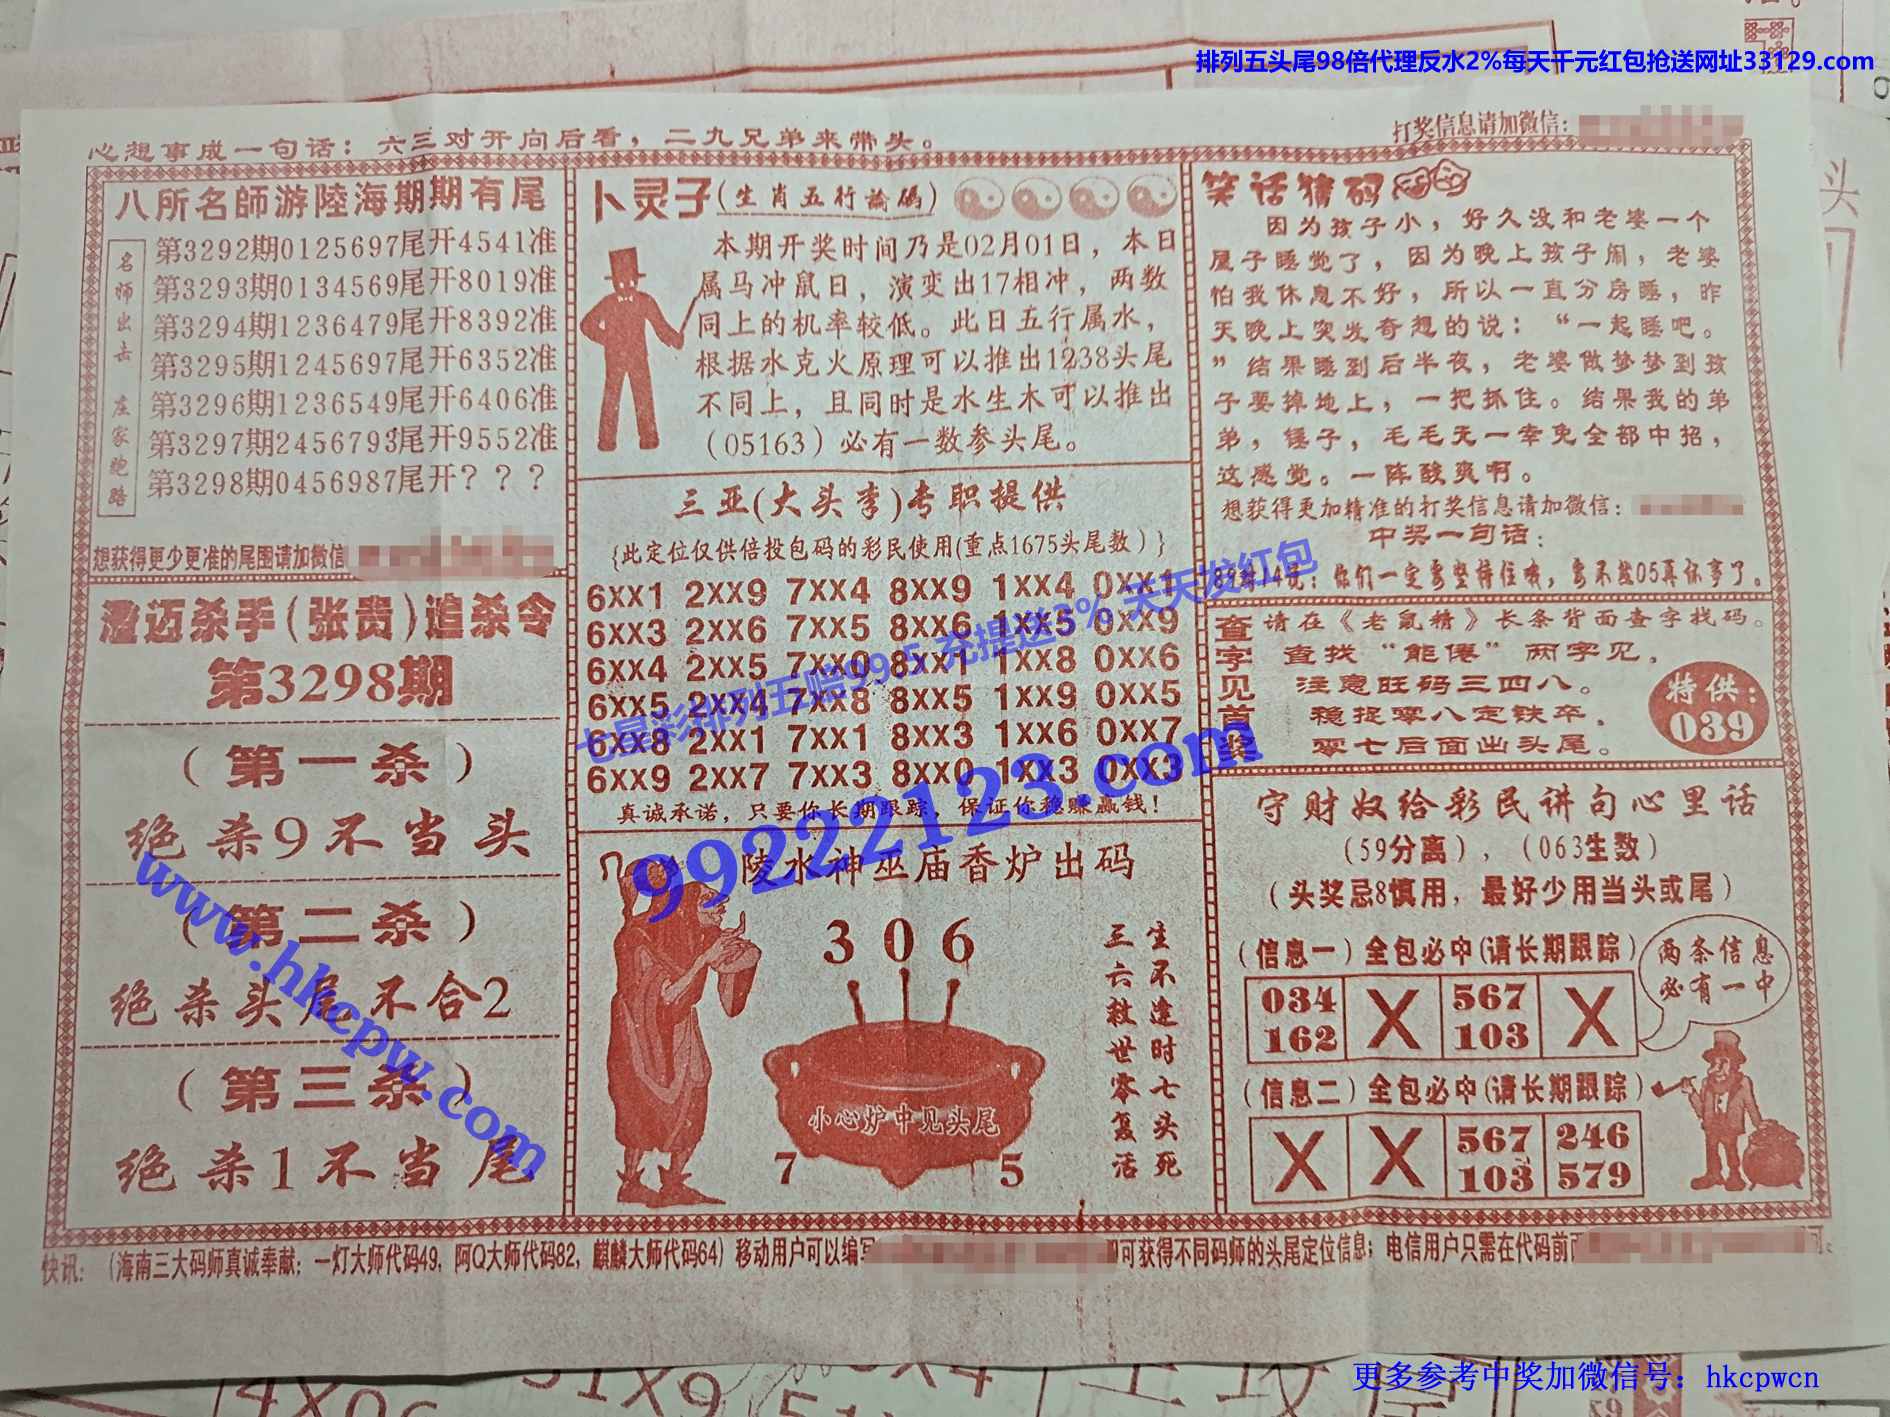 排列五头尾98倍代理反水2%每天千元红包抢送网址33129.com
打奖信息请加微信：
心想事成一句话：六三对开向后看，二九兄弟来带头。
八所名師游陸海期期有尾
名师出击 庄家跑路
第3292期0125697尾开4541准
第3293期0134569尾开8019准
第3294期1236479尾开8392准
第3295期1245697尾开6352准
第3296期1236549尾开6406准
第3297期2456793尾开9552准
第3298期0456987尾开？？？
想获得更少更准的尾图请加微信
澄迈杀手(张贵)追杀令
第3298期
(第一杀)
绝杀9不当头
(第二杀)
绝杀头尾不合2
(第三杀)
绝杀1不当尾
卜灵子(生肖五行論碼)
本期开奖时间乃是02月01日，本日
属马冲鼠日，演变出17相冲，两数
同上的机率较低。此日五行属水，
根据水克火原理可以推出1238头尾
不同上，且同时是水生木可以推出
（05163）必有一数参头尾。
三亚(大头李)专职提供
{此定位仅供倍投包码的彩民使用(重点1675头尾数)}
6XX1 2XX9 7XX4 8XX9 1XX4 0XX1
6XX3 2XX6 7XX5 8XX6 1XX5 0XX9
6XX4 2XX5 7XX0 8XX1 1XX8 0XX6
6XX5 2XX4 7XX8 8XX5 1XX9 0XX5
6XX8 2XX1 7XX1 8XX3 1XX6 0XX7
6XX9 2XX7 7XX3 8XX0 1XX3 0XX3
真诚承诺，只要你长期跟踪，保证你稳赚赢钱！
陵水神巫庙香炉出码
306
生不逢时七头死
三六救世零复活
小心炉中见头尾
7 5
笑话猜码
因为孩子小，好久没和老婆一个
屋子睡觉了，因为晚上孩子闹，老婆
怕我休息不好，所以一直分房睡，昨
天晚上突发奇想的说：“一起睡吧。
”结果睡到后半夜，老婆做梦梦到孩
子要掉地上，一把抓住。结果我的弟
弟，锤子，毛毛无一幸免全部中招，
这感觉。一阵酸爽啊。
想获得更加精准的打奖信息请加微信：
中奖一句话：
你们一定要坚持住哦，要不然05再你事了。
查字见首奖
请在《老鼠精》长条背面查字找码。
查找“能倦”两字见，
注意旺码三四八。
稳捉零八定铁卒，
零七后面出头尾。
特供：
039
守财奴给彩民讲句心里话
(59分离)，(063生数)
(头奖忌8慎用，最好少用当头或尾)
(信息一)全包必中(请长期跟踪)
034 X 567 X
162 103
两条信息
必有一中
(信息二)全包必中(请长期跟踪)
X X 567 246
103 579
快讯：(海南三大码师真诚奉献；一灯大师代码49, 阿Q大师代码82, 麒麟大师代码64) 移动用户可以编写
即可获得不同码师的头尾定位信息；电信用户只需在代码前
七星彩排列五赔99.5 充提送3% 天天发红包
99222123.com
www.hkcpw.com
更多参考中奖加微信号：hkcpwcn